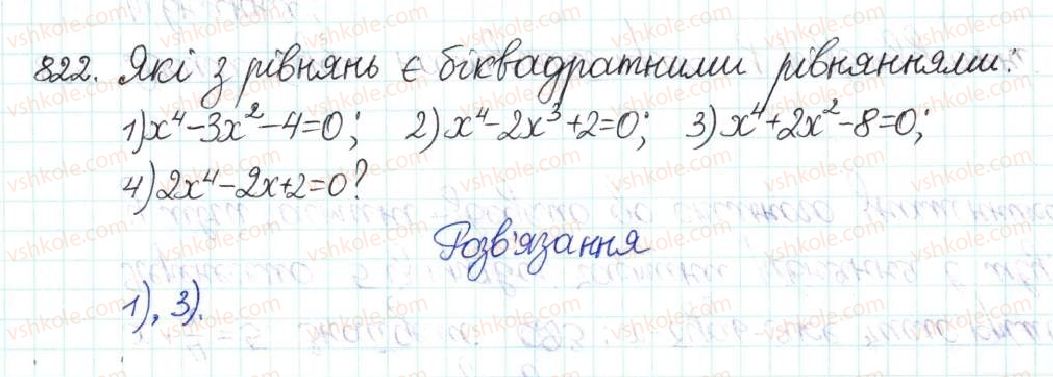 822. Які з рівнянь є біквадратними рівняннями:
1) x⁴-3x²-4=0; 2) x⁴-2x³+2=0; 3) x⁴+2x²-8=0;
4) 2x⁴-2x+2=0?
Розв'язання
1), 3).